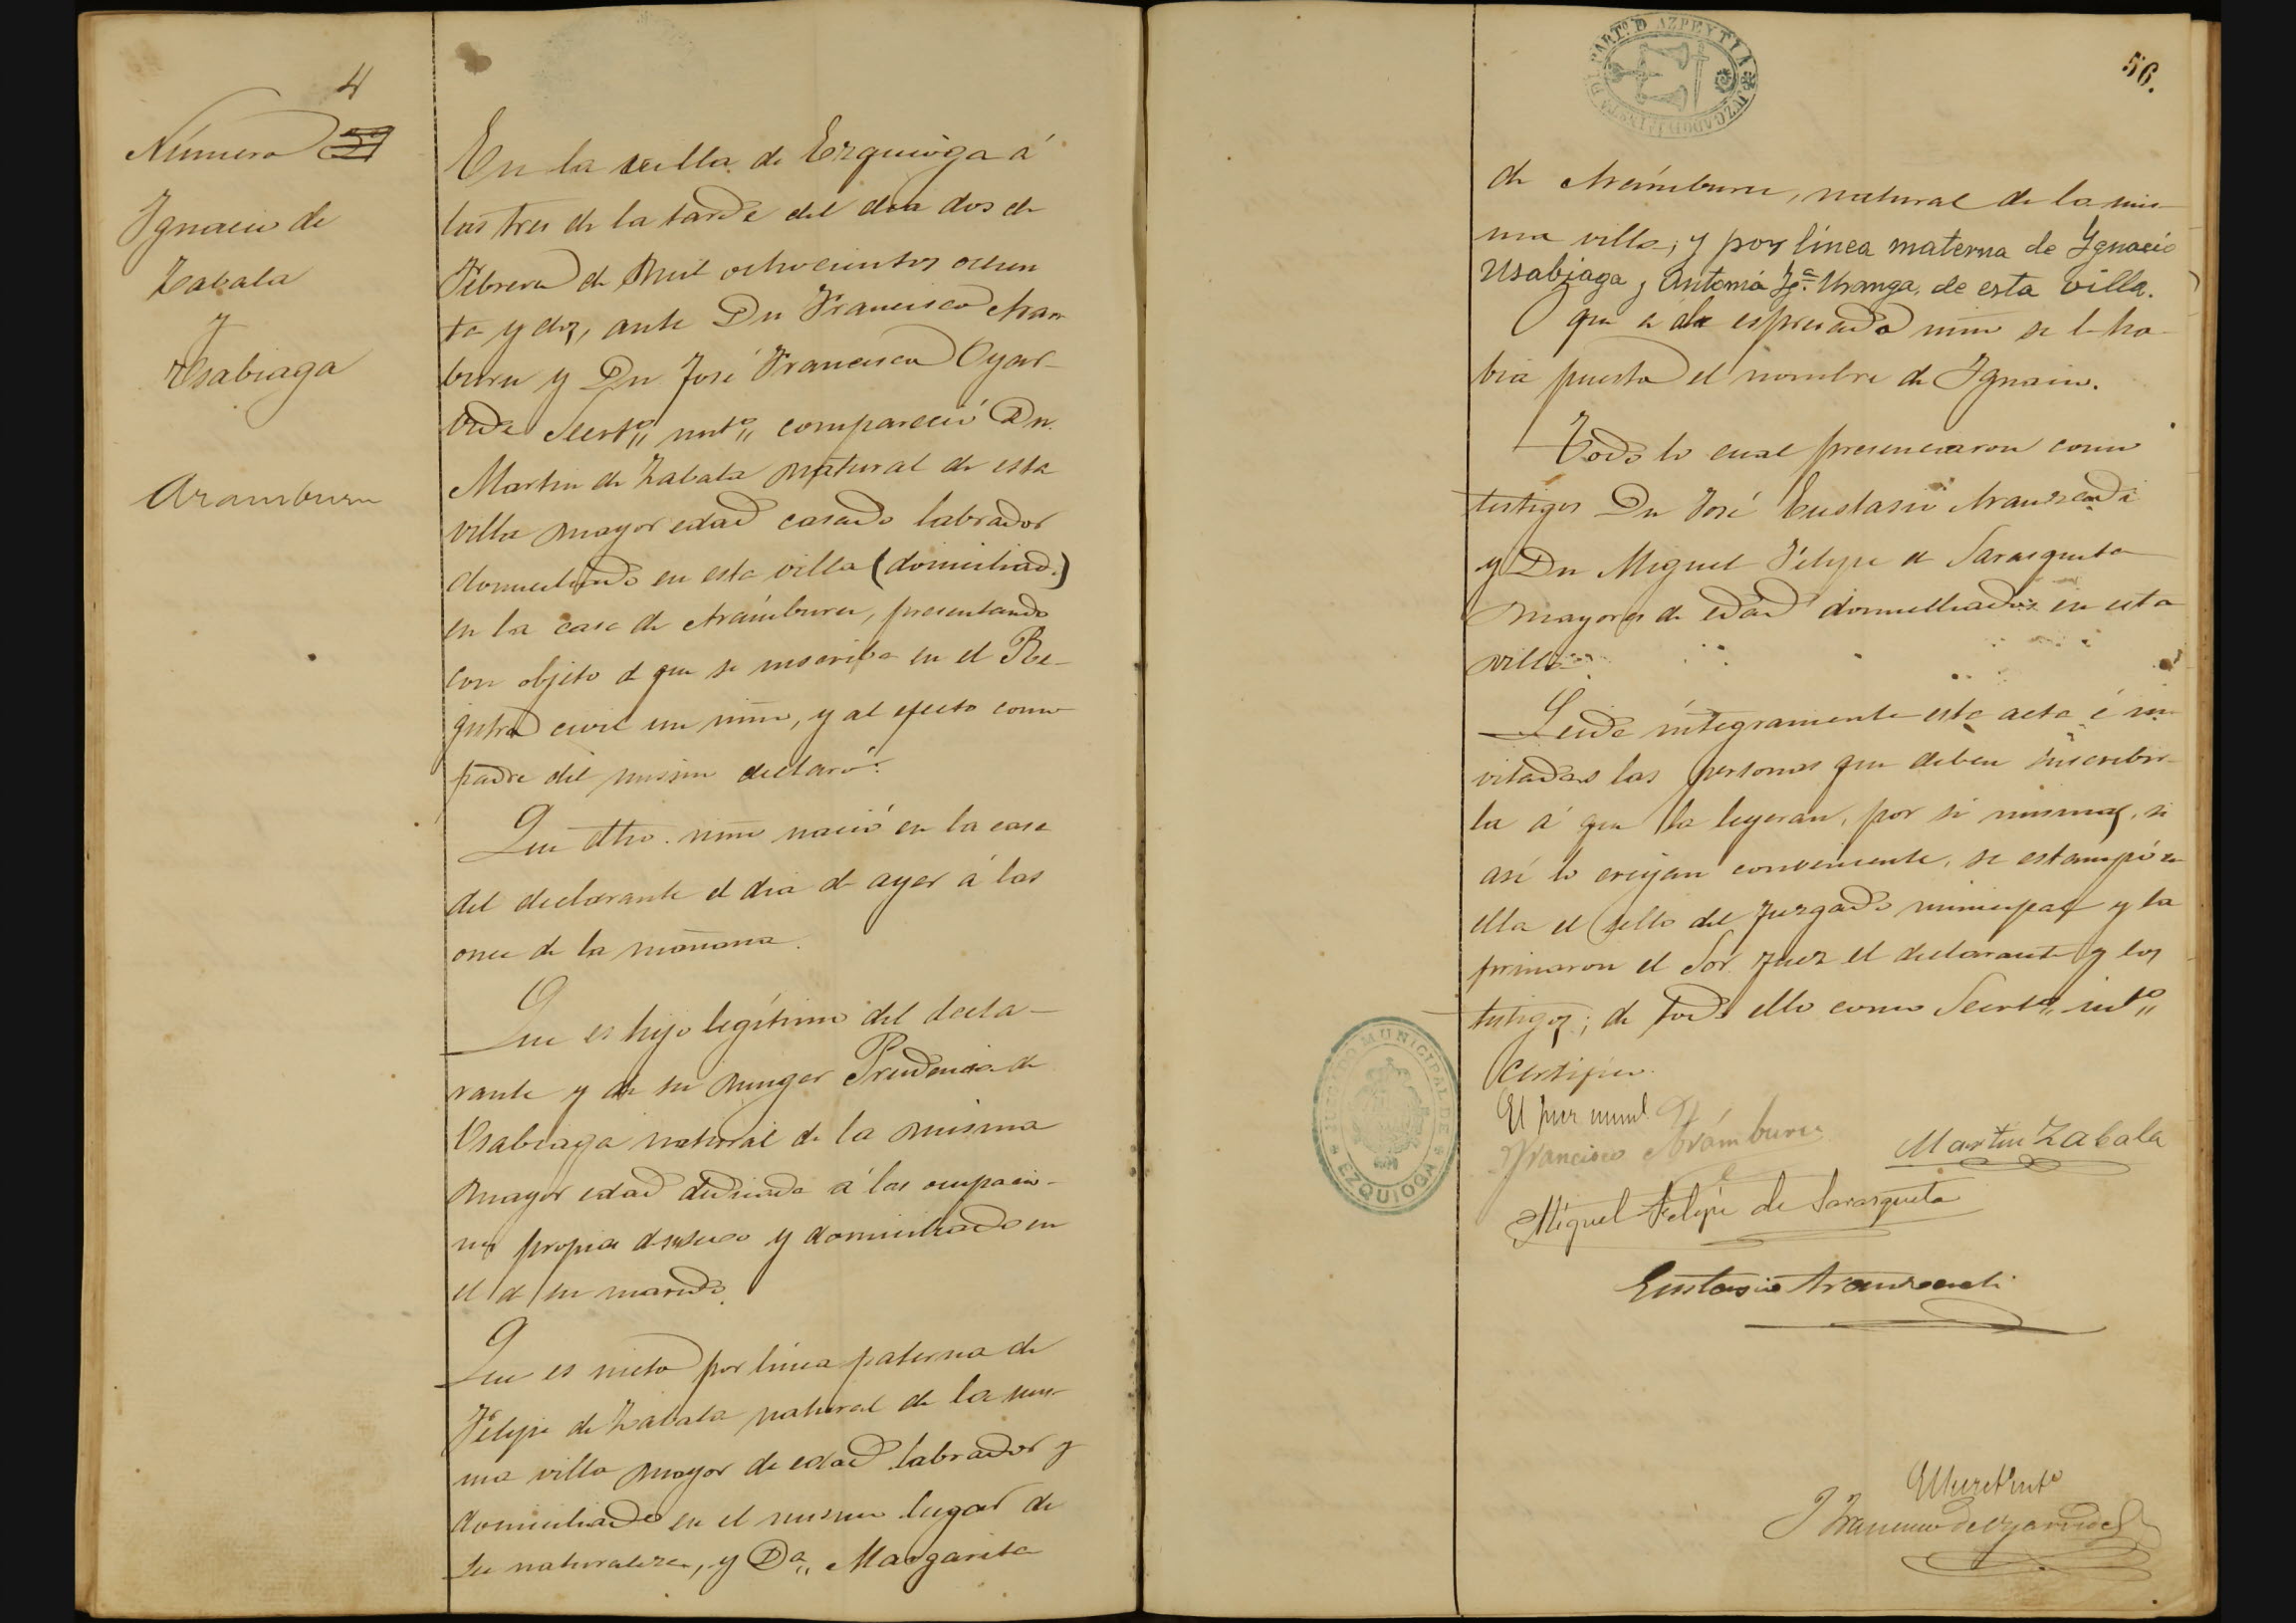 4
Número
Ignacio de
Zabala
y
Usabiaga
Aramburu
En la villa de Ezquioga á
las tres de la tarde del dia dos de
Febrero de Mil ochocientos ochen
ta y dos, ante Dn Francisco Aram
buru y Dn José Francisco Oyar
vide Secrt.º int.º compareció Dn.
Martin de Zabala natural de esta
villa mayor edad casado labrador
domiciliado en esta villa (domiciliad.)
en la casa de Arámburu, presentando
con objeto de que se inscriba en el Re-
gistro civil un niño, y al efecto como
padre del mismo declaró:
Que dho. niño nació en la casa
del declarante el dia de ayer á las
once de la mañana.
Que es hijo legítimo del decla-
rante y de su muger Prudencia de
Usabiaga natural de la misma
mayor edad dedicada á las ocupacio-
nes propias de su sexo y domiciliado en
el de su marido.
Que es nieto por línea paterna de
Felipe de Zabala natural de la mis-
ma villa mayor de edad labrador y
domiciliado en el mismo lugar de
su naturaleza, y Dª Margarita
PARTº D AZPEYTIA JUZGADO D 1ª INSTª DEL
56.
de Arámburu, natural de la mis-
ma villa; y por línea materna de Ignacio
Usabiaga y Antonia Igª. Uranga, de esta villa.
Que a de espresado niño se le ha-
bia puesto el nombre de Ignacio.
Todo lo cual presenciaron como
testigos Dn José Eustasio Aranzadi
y Dn Miguel Felipe de Sarasqueta
mayores de edad domiciliados en esta
villa.
Leida íntegramente esta acta é in-
vitadas las personas que deben suscribir-
la á que la leyeran, por si mismas, si
así lo creyan conveniente, se estampó en
ella el sello del Juzgado municipal y la
firmaron el Sor. Juez el declarante y los
testigos; de todo ello como Secrtº int.º
Certifico.
El juez munl
Francisco Arámburu
Martin Zabala
JUZGADO MUNICIPAL DE EZQUIOGA
Miguel Felipe de Sarasqueta
Eustasio Aranzadi
El Secret int.º
J Francisco de Oyarvide